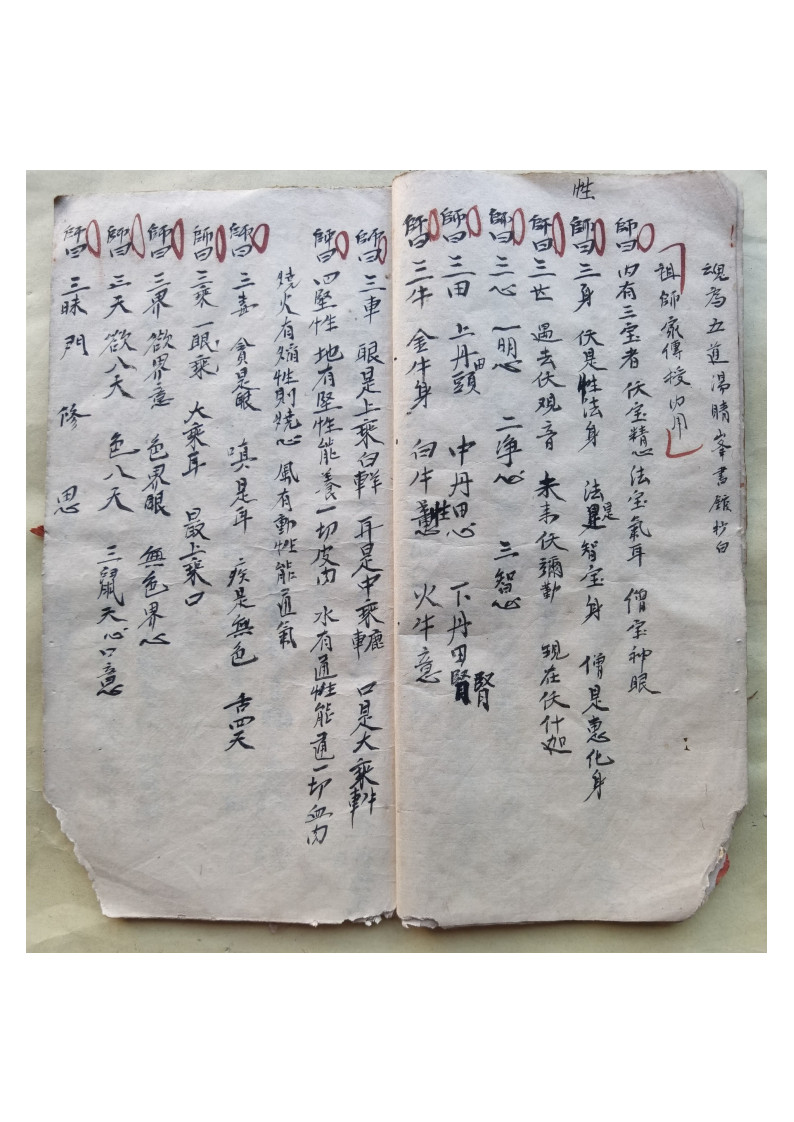 魂為五道湯晴峯書館抄白
祖師家傳授内用
師曰 内有三宝者 伕宝精心 法宝氣耳 僧宝神眼
性
師曰 三身 伕是性法身 法是智宝身 僧是惠化身
師曰 三世 過去伕观音 未来伕彌勒 現在伕什加
師曰 三心 一明心 二净心 三智心
師曰 三田 上丹田頭 中丹田心 下丹田腎
師曰 三牛 金牛身 白牛性 火牛意
師曰 三車 眼是上乘白 耳是中乘 口是大乘
師曰 四堅性 地有堅性能養一切皮肉 水有通性能通一切血肉
燒火有性則燒心 風有動性能通氣
師曰 三毒 貪是眼 嗔是耳 疾是無色 舌四天
師曰 三乘 一眼乘 大乘耳 最上乘口
師曰 三界 欲界意 色界眼 無色界心
師曰 三天 欲八天 色八天 三天心口意
師曰 三昧門 修 思